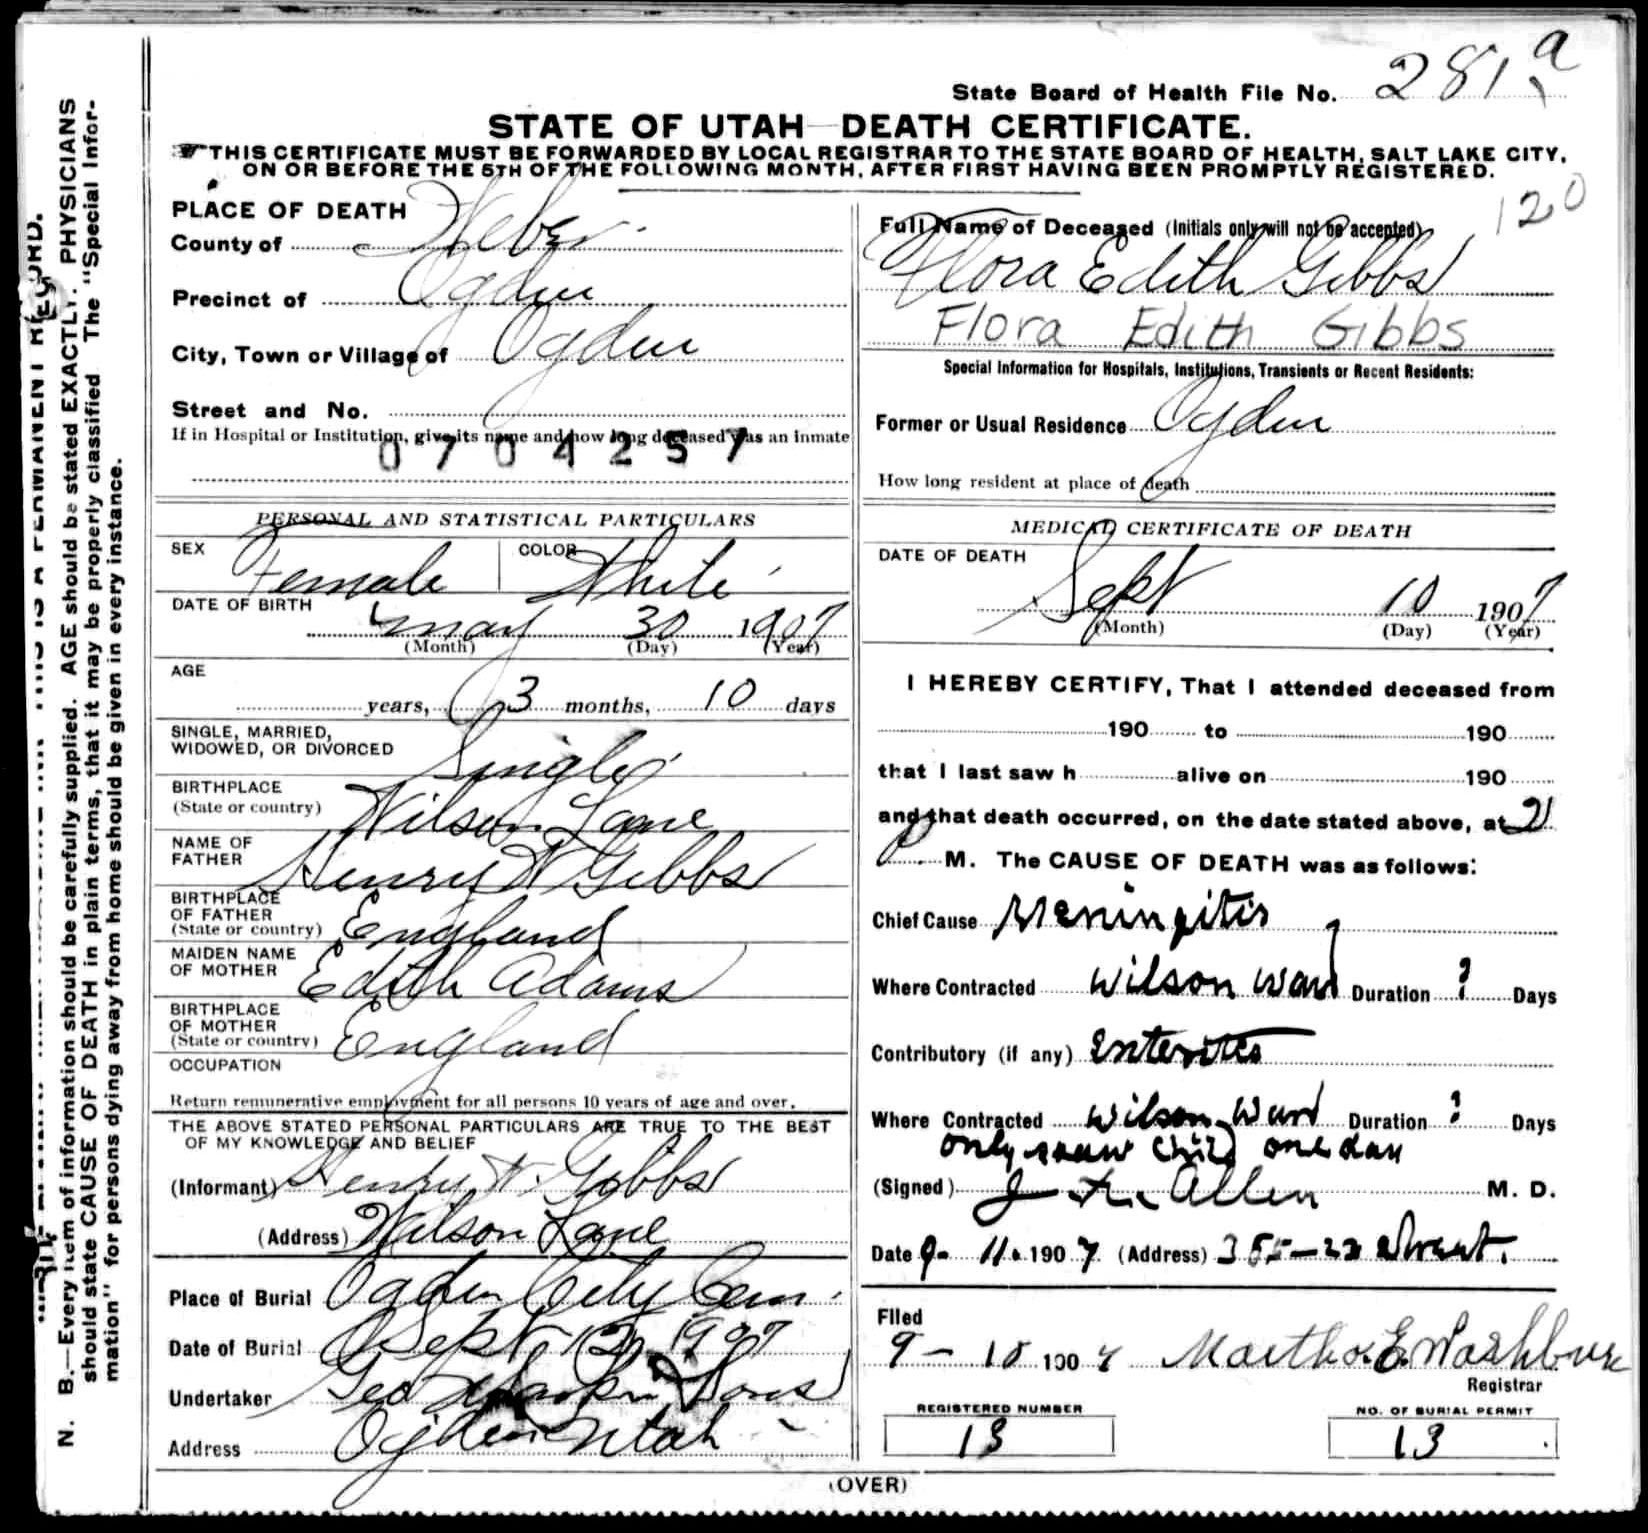 State Board of Health File No. 281 a
STATE OF UTAH—DEATH CERTIFICATE.
THIS CERTIFICATE MUST BE FORWARDED BY LOCAL REGISTRAR TO THE STATE BOARD OF HEALTH, SALT LAKE CITY,
ON OR BEFORE THE 5TH OF THE FOLLOWING MONTH, AFTER FIRST HAVING BEEN PROMPTLY REGISTERED.
120
PLACE OF DEATH
County of Weber
Precinct of Ogden
City, Town or Village of Ogden
Street and No.
If in Hospital or Institution, give its name and how long deceased was an inmate
0704257
Full Name of Deceased (Initials only will not be accepted)
Flora Edith Gibbs
Flora Edith Gibbs
Special Information for Hospitals, Institutions, Transients or Recent Residents:
Former or Usual Residence Ogden
How long resident at place of death
PERSONAL AND STATISTICAL PARTICULARS
SEX Female COLOR White
DATE OF BIRTH
May 30 1907
(Month) (Day) (Year)
AGE
years, 3 months, 10 days
SINGLE, MARRIED,
WIDOWED, OR DIVORCED Single
BIRTHPLACE
(State or country) Wilson Lane
NAME OF
FATHER Henry W Gibbs
BIRTHPLACE
OF FATHER
(State or country) England
MAIDEN NAME
OF MOTHER Edith Adams
BIRTHPLACE
OF MOTHER
(State or country) England
OCCUPATION
Return remunerative employment for all persons 10 years of age and over.
THE ABOVE STATED PERSONAL PARTICULARS ARE TRUE TO THE BEST
OF MY KNOWLEDGE AND BELIEF
(Informant) Henry W. Gibbs
(Address) Wilson Lane
Place of Burial Ogden City Cem.
Date of Burial Sept 12 1907
Undertaker Geo Larkin Sons
Address Ogden Utah
MEDICAL CERTIFICATE OF DEATH
DATE OF DEATH
Sept 10 1907
(Month) (Day) (Year)
I HEREBY CERTIFY, That I attended deceased from
190 to 190
that I last saw h alive on 190
and that death occurred, on the date stated above, at 2
P M. The CAUSE OF DEATH was as follows:
Chief Cause Meningitis
Where Contracted Wilson Ward Duration ? Days
Contributory (if any) Enteritis
Where Contracted Wilson Ward Duration ? Days
only saw child one day
(Signed) Allen M. D.
Date 9- 11. 1907 (Address) Street.
Filed
9 - 10 1907 Martha E. Washburn
Registrar
REGISTERED NUMBER
13
NO. OF BURIAL PERMIT
13
(OVER)
N. B.—Every item of information should be carefully supplied. AGE should be stated EXACTLY. PHYSICIANS
should state CAUSE OF DEATH in plain terms, that it may be properly classified The "Special Infor-
mation" for persons dying away from home should be given in every instance.
THIS IS A PERMANENT RECORD.